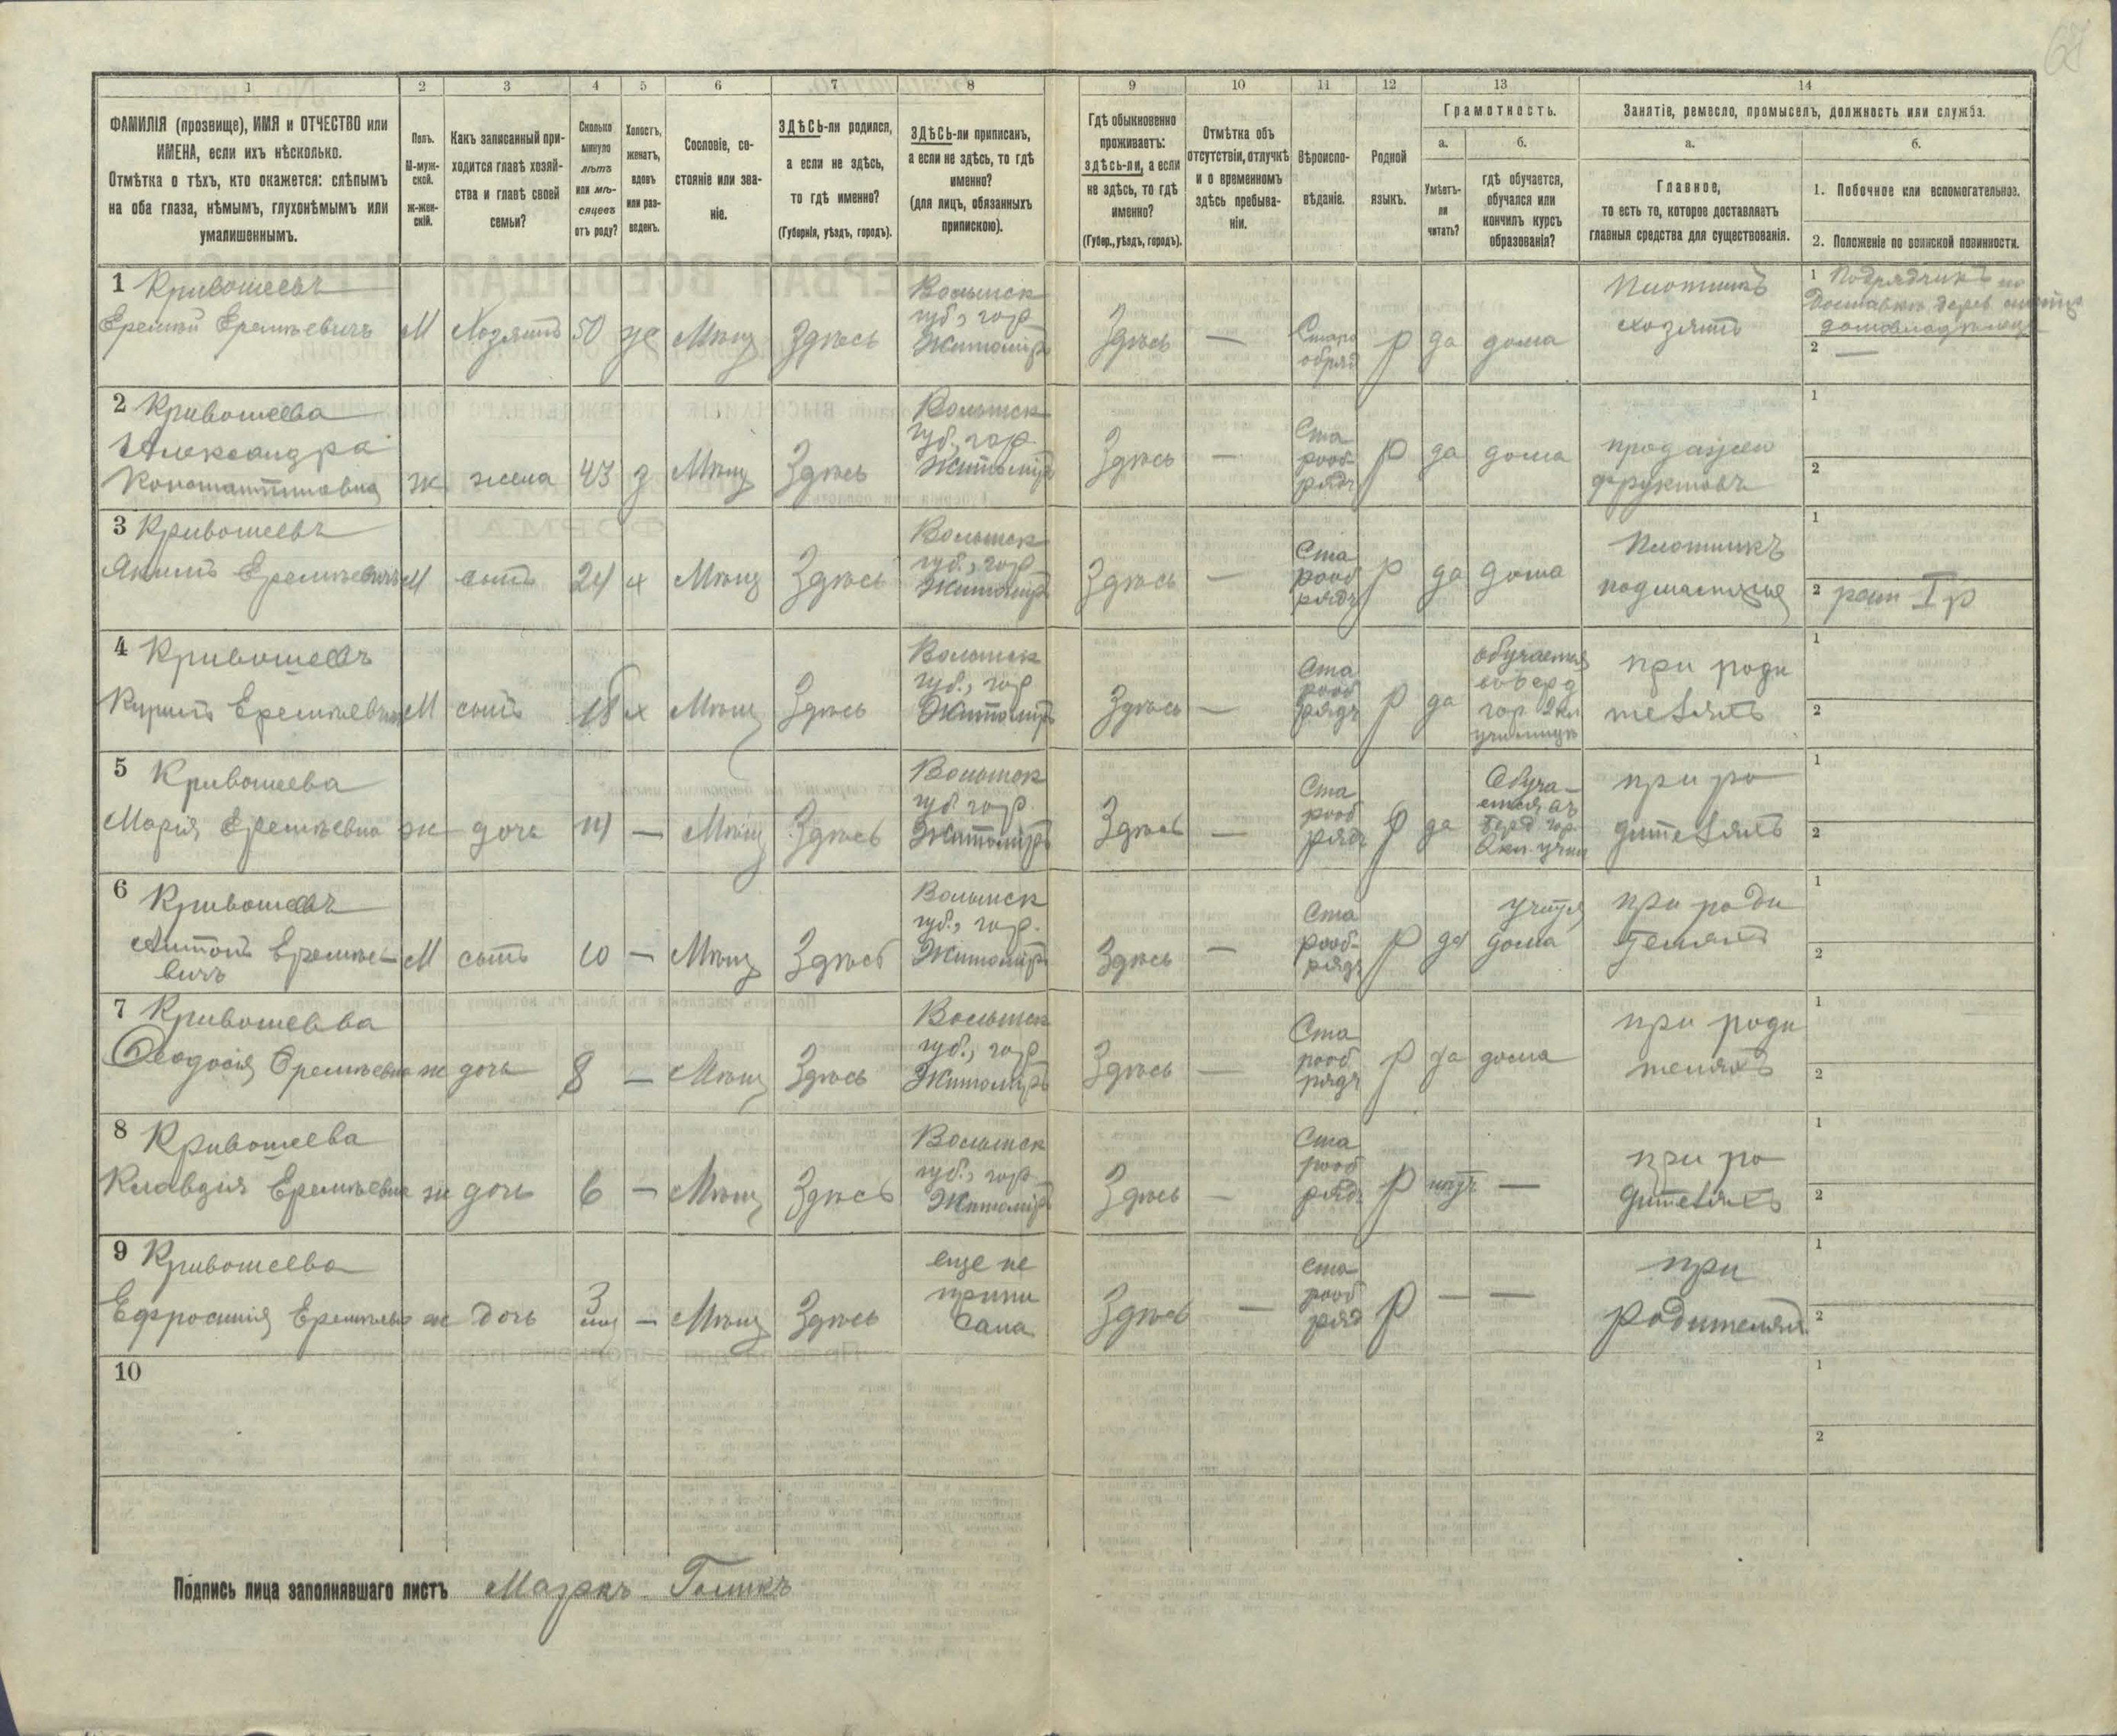 67
1 2 3 4 5 6 7 8 9 10 11 12 13 14
ФАМИЛІЯ (прозвище), ИМЯ и ОТЧЕСТВО или
ИМЕНА, если ихъ нѣсколько.
Отмѣтка о тѣхъ, кто окажется: слѣпымъ
на оба глаза, нѣмымъ, глухонѣмымъ или
умалишеннымъ.
Полъ.
М-муж-
ской.
Ж-жен-
скій.
Какъ записанный при-
ходится главѣ хозяй-
ства и главѣ своей
семьи?
Сколько
минуло
лѣтъ
или мѣ-
сяцевъ
отъ роду?
Холостъ,
женатъ,
вдовъ
или раз-
веденъ.
Сословіе, со-
стояніе или зва-
ніе.
ЗДѢСЬ-ли родился,
а если не здѣсь,
то гдѣ именно?
(Губернія, уѣздъ, городъ).
ЗДѢСЬ-ли приписанъ,
а если не здѣсь, то гдѣ
именно?
(для лицъ, обязанныхъ
припискою).
Гдѣ обыкновенно
проживаетъ:
здѣсь-ли, а если
не здѣсь, то гдѣ
именно?
(Губер., уѣздъ, городъ).
Отмѣтка объ
отсутствіи, отлучкѣ
и о временномъ
здѣсь пребыва-
ніи.
Вѣроиспо-
вѣданіе.
Родной
языкъ.
Грамотность.
а.
Умѣетъ-
ли
читать?
б.
гдѣ обучается,
обучался или
кончилъ курсъ
образованія?
Занятіе, ремесло, промыселъ, должность или служба.
а.
Главное,
то есть то, которое доставляетъ
главныя средства для существованія.
б.
1. Побочное или вспомогательное.
2. Положеніе по воинской повинности.
1 Кривошеевъ
Еремѣй Еремѣевичъ
М
Хозяинъ
50
ж
Мѣщ
Здѣсь
Волынск
губ., гор
Житоміръ
Здѣсь
—
Старо
обряд
р
да
дома
Плотникъ
хозяинъ
1 Подрядчикъ по
доставкѣ дерев
домовладѣлец
2 —
2 Кривошеева
Александра
Константиновна
ж
жена
43
з
Мѣщ
Здѣсь
Волынск
губ., гор.
Житоміръ
Здѣсь
—
Ста
рооб-
рядч
р
да
дома
продажею
фруктовъ
1
2
3 Кривошеевъ
Якимъ Еремѣевичъ
М
сынъ
24
х
Мѣщ
Здѣсь
Волынск
губ., гор
Житоміръ
Здѣсь
—
Ста
рооб
рядч
р
да
дома
Плотникъ
подмастерье
1
2 ратн I р
4 Кривошеевъ
Кирилъ Еремѣевич
М
сынъ
18
х
Мѣщ
Здѣсь
Волынск
губ., гор
Житоміръ
Здѣсь
—
Ста
рооб
рядч
р
да
обучается
въ берд
гор. 2 кл
училищѣ
при роди
телях
1
2
5 Кривошеева
Марія Еремѣевна
ж
дочь
14
—
Мѣщ
Здѣсь
Волынск
губ. гор.
Житоміръ
Здѣсь
—
Ста
рооб
рядч
р
да
Обуча-
ется въ
берд гор
2 кл. учил
при ро
дителяхъ
1
2
6 Кривошеевъ
Антонъ Еремѣе-
вичъ
М
сынъ
10
—
Мѣщ
Здѣсь
Волынск
губ., гор.
Житоміръ
Здѣсь
—
Ста
рооб-
рядч
р
да
учится
дома
при роди
телях
1
2
7 Кривошеева
Ѳеодосія Еремѣевна
ж
дочь
8
—
Мѣщ
Здѣсь
Волынск
губ., гор
Житоміръ
Здѣсь
—
Ста
рооб
рядч
р
да
дома
при роди
теляхъ
1
2
8 Кривошеева
Клавдія Еремѣевна
ж
дочь
6
—
Мѣщ
Здѣсь
Волынск
губ., гор
Житоміръ
Здѣсь
—
Ста
рооб
рядч
р
нѣтъ
—
при ро
дителяхъ
1
2
9 Кривошеева
Ефросинія Еремѣевн
ж
дочь
3
мѣс
—
Мѣщ
Здѣсь
еще не
припи
сана
Здѣсь
—
ста
рооб
ряд
р
—
—
при
родителях
1
2
10
1
2
Подпись лица заполнявшаго листъ Маркъ Голикъ